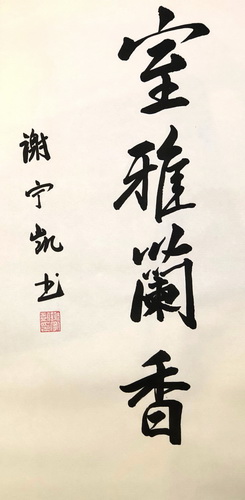 室雅蘭香
谢宁凯书